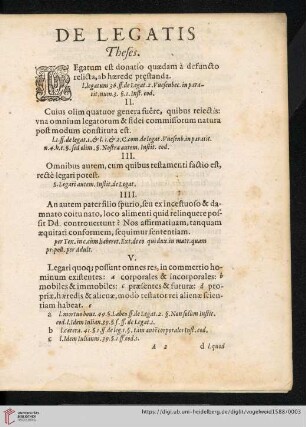 DE LEGATIS
Theses.
LEgatum est donatio quædam à defuncto
relicta, ab hærede præstanda.
l. legatum 36. ff. de Legat. 2. Vuesenbec. in para-
tit. num. 3. §. 1. Inst. eod.
II.
Cuius olim quatuor genera fuêre, quibus reiectis:
vna omnium legatorum & fidei commissorum natura
post modum constituta est.
l. 1. ff. de legat. 1. & l. 1. & 2. C. com. de legat. Vuesenb. in parat tit.
n. 4. & 5. §. sed olim. §. Nostra autem. Instit. eod.
III.
Omnibus autem, cum quibus testamenti factio est,
rectè legari potest.
§. Legari autem. Instit. de Legat.
IIII.
An autem pater filio spurio, seu ex incestuoso &
damnato coitu nato, loco alimenti quid relinquere pos-
sit Dd. controuertunt? Nos affirmatiuam, tanquam
æquitati conformem, sequimur sententiam.
per Tex. in c. cùm haberet. Ext. de eo qui dux. in matr. quam
pr. post. per adult.
V.
Legari quoq; possunt omnes res, in commercio ho-
minum existentes: a corporales & incorporales: b
mobiles & immobiles: c præsentes & futuræ: d pro-
priæ, hæredis & alienæ, modò testator rei alienæ scien-
tiam habeat.
a l. mortuo boue. 49. §. Labeo ff. de Legat. 2. §. Non solùm Instit.
eod. l. Idem Iulian. 39. §. 1. ff. de Leg. 1.
b l. cetera. 41. §. 1. ff. de leg. 1. §. tam autē corporales Inst. eod.
c l. Idem Iulianus. 39. §. 1. ff. eod. 1.
A 2
d l. quod
https://digi.ub.uni-heidelberg.de/diglit/vogelward1588/0003